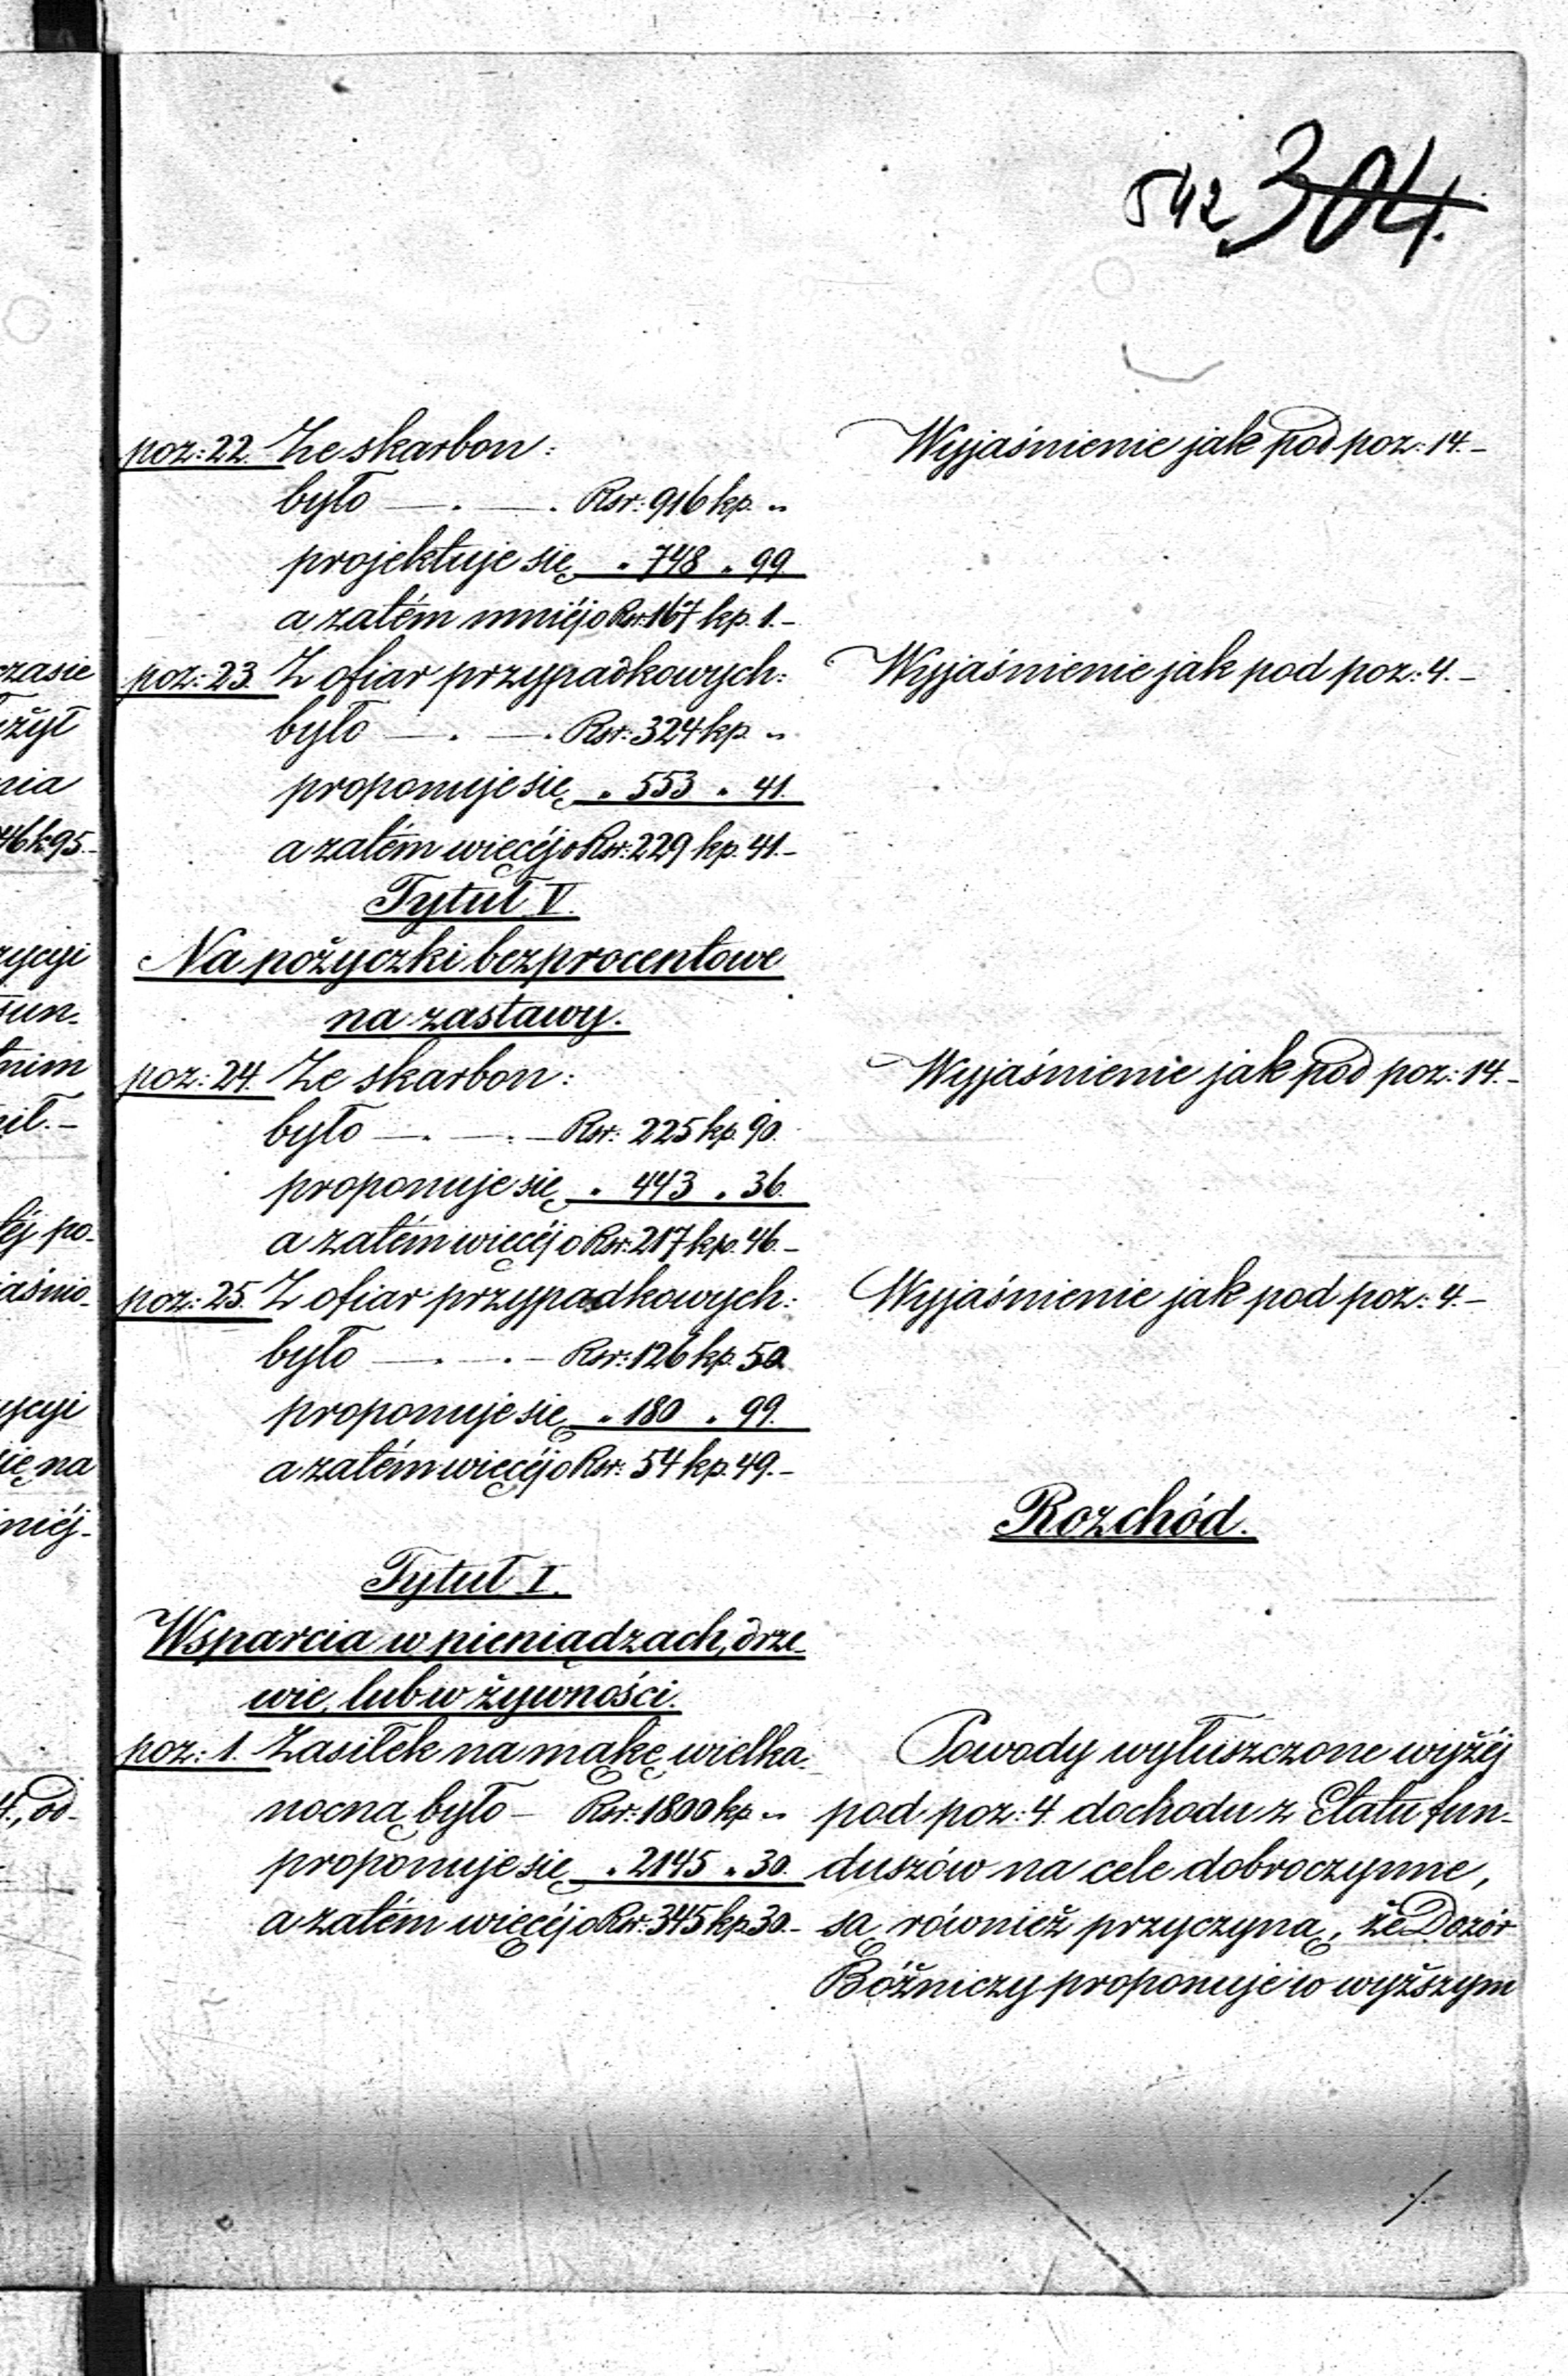 542 304.
poz: 22. Ze skarbon:
było —.—. Rsr: 916 kp. „
projektuje się „ 748 „ 99.
a zatém mniéj o Rsr: 167 kp. 1.–
Wyjaśnienie jak pod poz: 14.–
poz: 23. Z ofiar przypadkowych:
było —.—. Rsr: 324 kp. „
proponuje się „ 553 „ 41.
a zatém więcéj o Rsr: 229 kp. 41.–
Wyjaśnienie jak pod poz: 4.–
Tytuł V.
Na pożyczki bezprocentowe
na zastawy.
poz: 24. Ze skarbon:
było —.—.— Rsr: 225 kp. 90.
proponuje się „ 443 „ 36.
a zatém więcéj o Rsr: 217 kp. 46.–
Wyjaśnienie jak pod poz: 14.–
poz: 25. Z ofiar przypadkowych:
było —.—.– Rsr: 126 kp. 50.
proponuje się „ 180 „ 99.
a zatém więcéj o Rsr: 54 kp. 49.–
Wyjaśnienie jak pod poz: 4.–
Rozchód.
Tytuł I.
Wsparcia w pieniądzach, drze-
wie, lub w żywności.
poz: 1. Zasiłek na mąkę wielka-
nocną było – Rsr: 1800 kp. „
proponuje się „ 2145 „ 30.
a zatém więcéj o Rsr: 345 kp. 30.–
Powody wyłuszczone wyżéj
pod poz: 4. dochodu z Etatu fun-
duszów na cele dobroczynne,
są również przyczyną, że Dozór
Bóżniczy proponuje w wyższym
./.
zasie
nia
46 k 95.–
ycyi
fun-
tnim
éj po-
jaśnio-
ycyi
się na
niéj-
od-